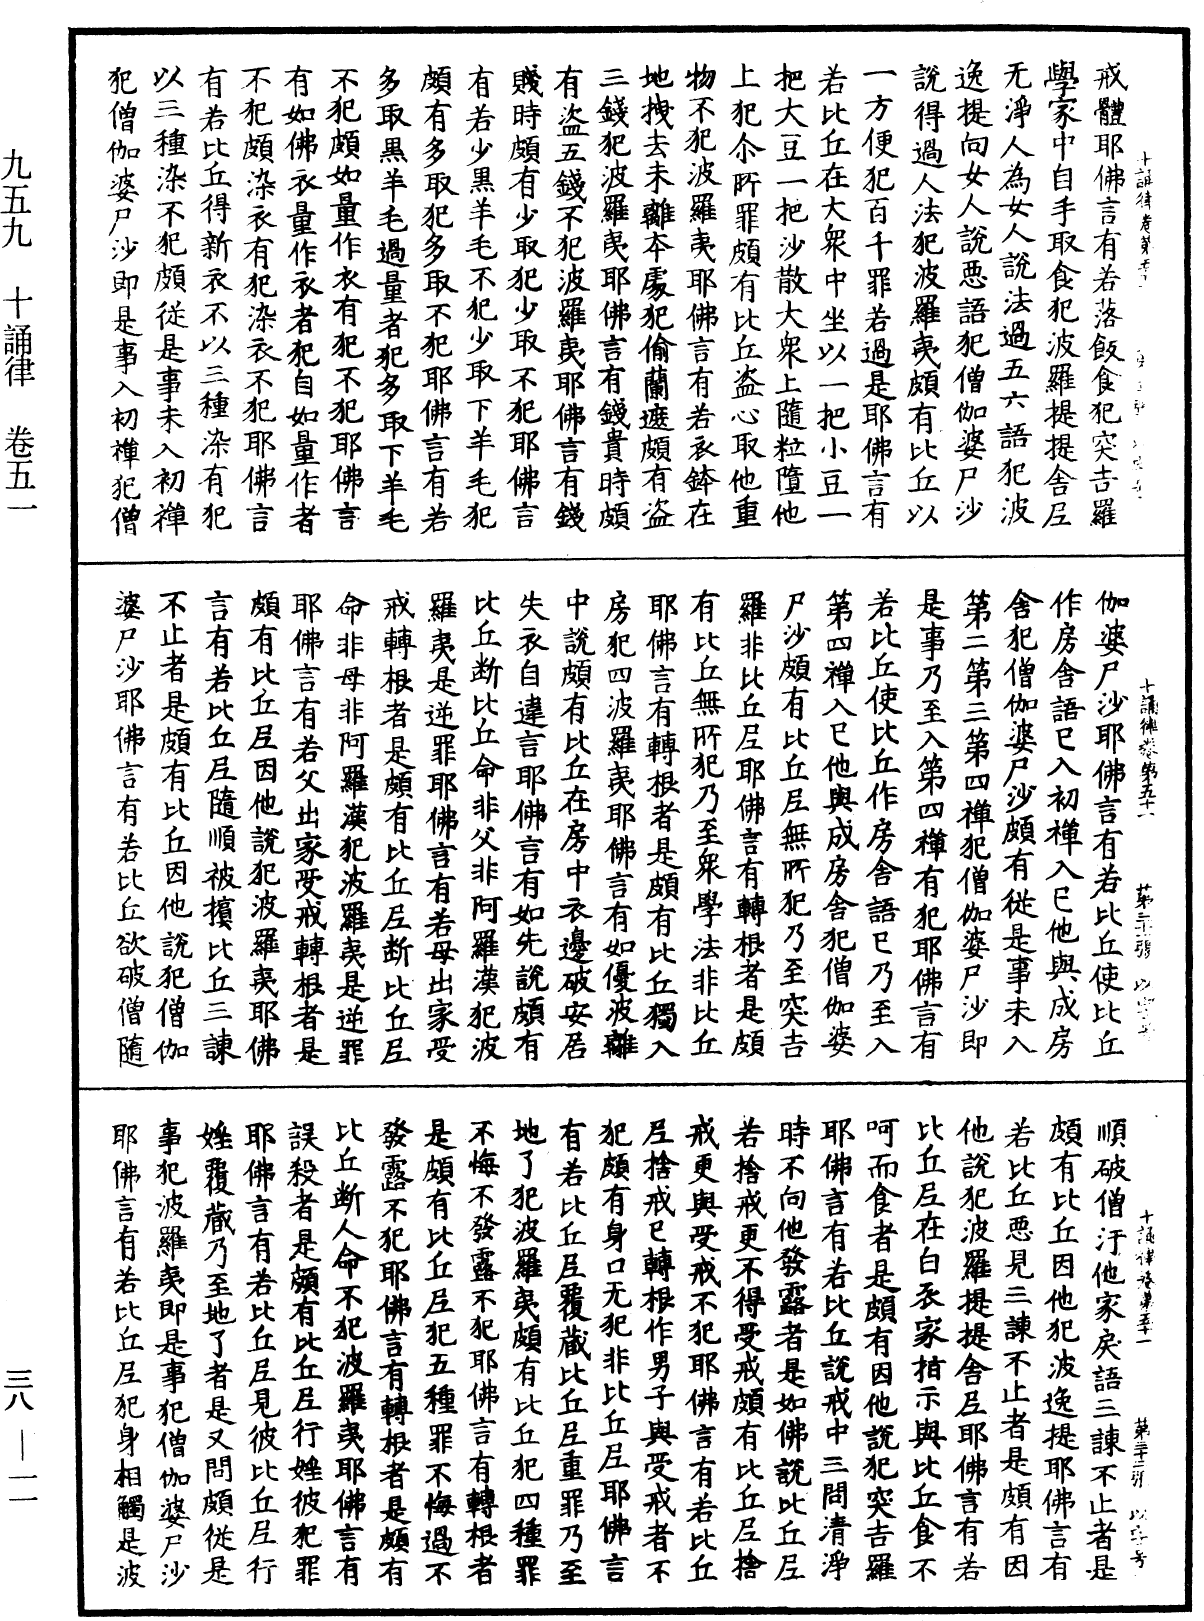 戒體耶佛言有若落飯食犯突吉羅
學家中自手取食犯波羅提提舍尼
无淨人為女人說法過五六語犯波
逸提向女人說惡語犯僧伽婆尸沙
說得過人法犯波羅夷頗有比丘以
一方便犯百千罪若過是耶佛言有
若比丘在大衆中坐以一把小豆一
把大豆一把沙散大衆上隨粒墮他
上犯尒所罪頗有比丘盜心取他重
物不犯波羅夷耶佛言有若衣鉢在
地拽去未離本處犯偷蘭遮頗有盜
三錢犯波羅夷耶佛言有錢貴時頗
有盜五錢不犯波羅夷耶佛言有錢
賤時頗有少取犯少取不犯耶佛言
有若少黑羊毛不犯少取下羊毛犯
頗有多取犯多取不犯耶佛言有若
多取黑羊毛過量者犯多取下羊毛
不犯頗如量作衣有犯不犯耶佛言
有如佛衣量作衣者犯自如量作者
不犯頗染衣有犯染衣不犯耶佛言
有若比丘得新衣不以三種染有犯
以三種染不犯頗從是事未入初禪
犯僧伽婆尸沙即是事入初禪犯僧
十誦律卷第五十一 第二十張 以字号
伽婆尸沙耶佛言有若比丘使比丘
作房舍語已入初禪入已他與成房
舍犯僧伽婆尸沙頗有從是事未入
第二第三第四禪犯僧伽婆尸沙即
是事乃至入第四禪有犯耶佛言有
若比丘使比丘作房舍語已乃至入
第四禪入已他與成房舍犯僧伽婆
尸沙頗有比丘尼無所犯乃至突吉
羅非比丘尼耶佛言有轉根者是頗
有比丘無所犯乃至衆學法非比丘
耶佛言有轉根者是頗有比丘獨入
房犯四波羅夷耶佛言有如優波離
中說頗有比丘在房中衣邊破安居
失衣自違言耶佛言有如先說頗有
比丘断比丘命非父非阿羅漢犯波
羅夷是逆罪耶佛言有若母出家受
戒轉根者是頗有比丘尼断比丘尼
命非母非阿羅漢犯波羅夷是逆罪
耶佛言有若父出家受戒轉根者是
頗有比丘尼因他說犯波羅夷耶佛
言有若比丘尼隨順被擯比丘三諫
不止者是頗有比丘因他說犯僧伽
婆尸沙耶佛言有若比丘欲破僧隨
順破僧汙他家戾語三諫不止者是
頗有比丘因他犯波逸提耶佛言有
若比丘惡見三諫不止者是頗有因
他說犯波羅提提舍尼耶佛言有若
比丘尼在白衣家指示與比丘食不
呵而食者是頗有因他說犯突吉羅
耶佛言有若比丘說戒中三問清淨
時不向他發露者是如佛說比丘尼
若捨戒更不得受戒頗有比丘尼捨
戒更與受戒不犯耶佛言有若比丘
尼捨戒已轉根作男子與受戒者不
犯頗有身口无犯非比丘尼耶佛言
有若比丘尼覆藏比丘尼重罪乃至
地了犯波羅夷頗有比丘犯四種罪
不悔不發露不犯耶佛言有轉根者
是頗有比丘尼犯五種罪不悔過不
發露不犯耶佛言有轉根者是頗有
比丘断人命不犯波羅夷耶佛言有
誤殺者是頗有比丘尼行婬彼犯罪
耶佛言有若比丘尼見彼比丘尼行
婬覆藏乃至地了者是又問頗從是
事犯波羅夷即是事犯僧伽婆尸沙
耶佛言有若比丘尼犯身相觸是波
九五九 十誦律 卷五一
三八—一一